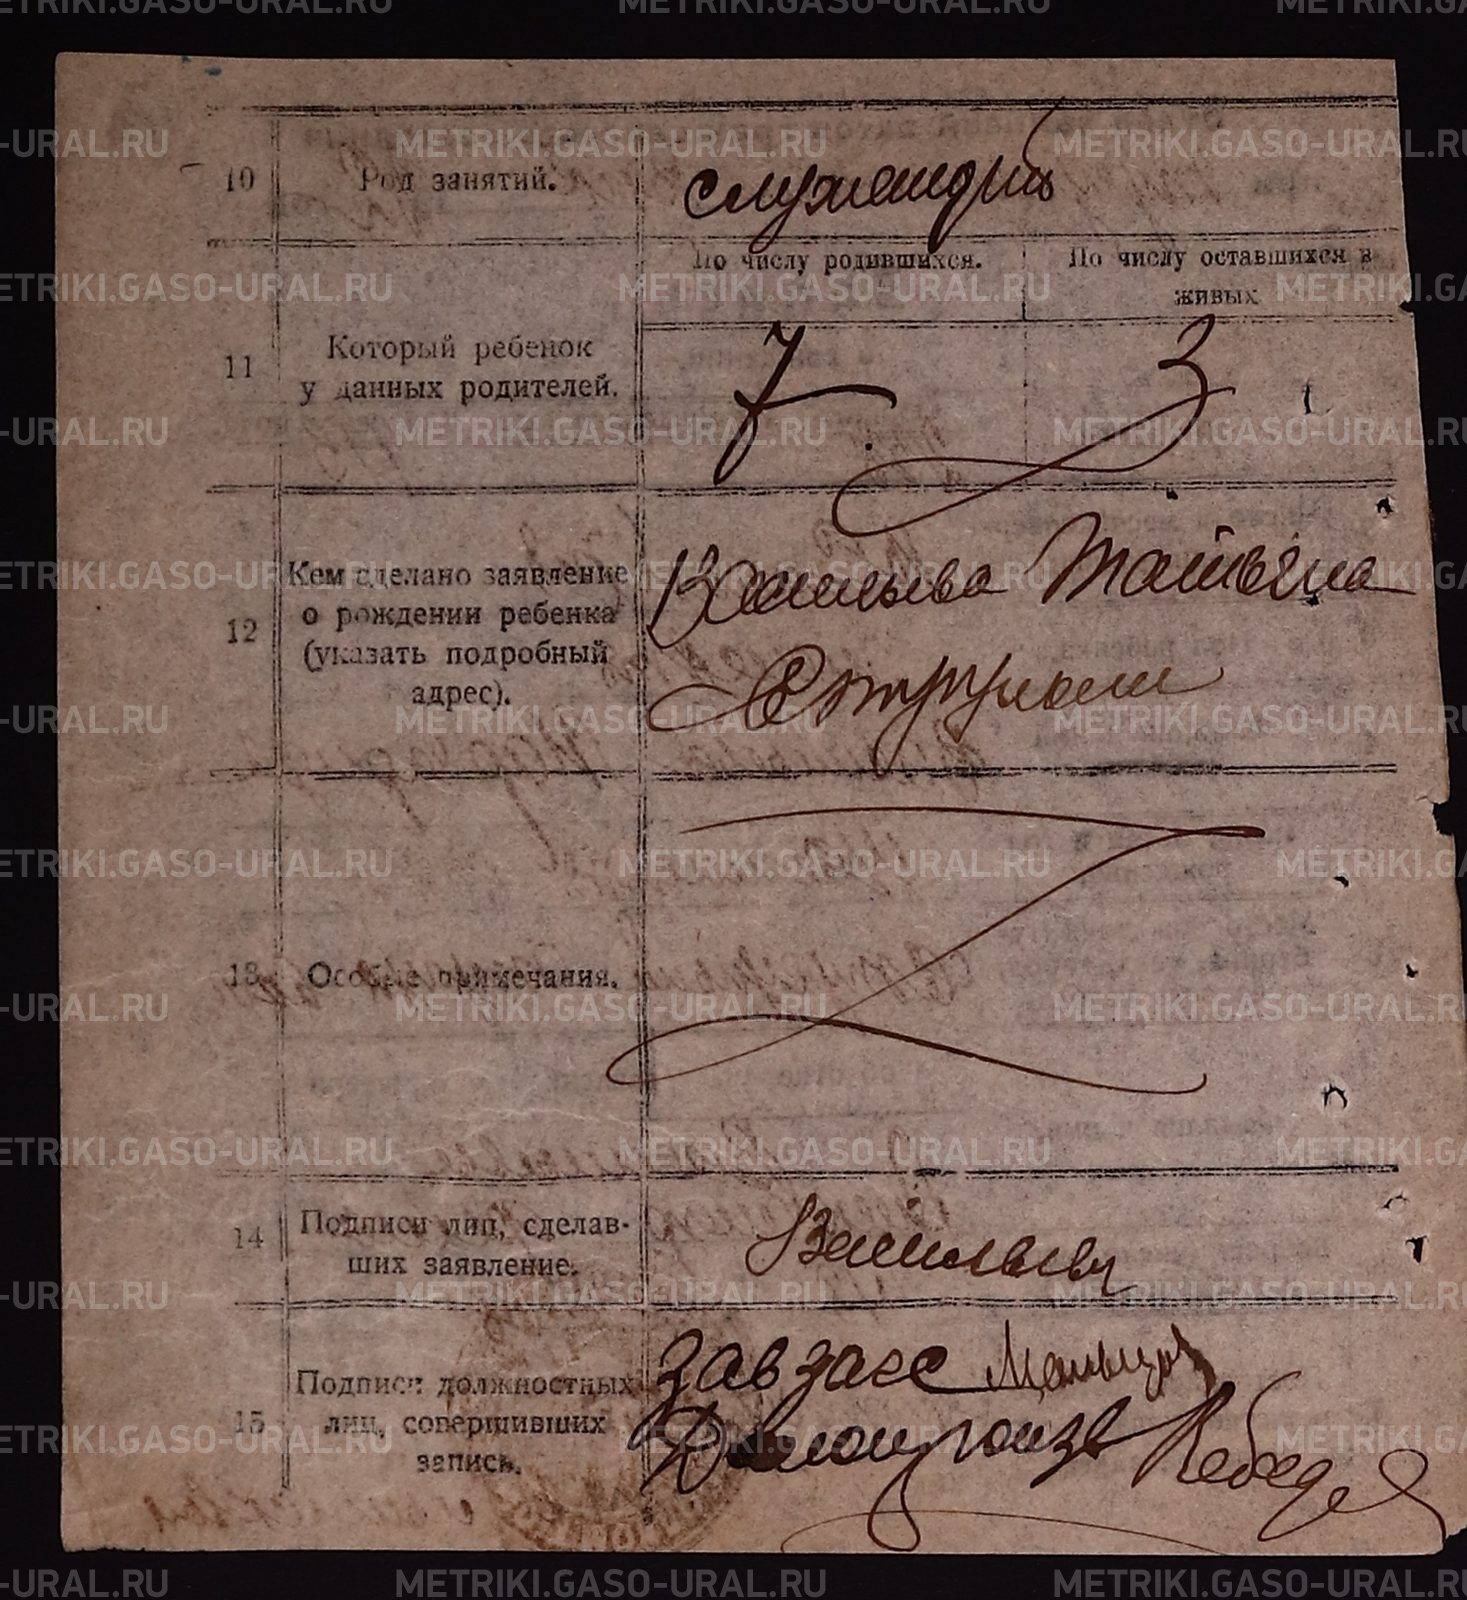 10 Род занятий. служащий
По числу родившихся. По числу оставшихся в
живых
11 Который ребенок
у данных родителей. 7 3
12 Кем сделано заявление
о рождении ребенка
(указать подробный
адрес).
Васильева Татьяна
13 Особые примечания.
14 Подписи лиц, сделав-
ших заявление.
Васильевы
15 Подписи должностных
лиц, совершивших
запись.
завзагс Мальцев
Делопроизв Лебедев
METRIKI.GASO-URAL.RU